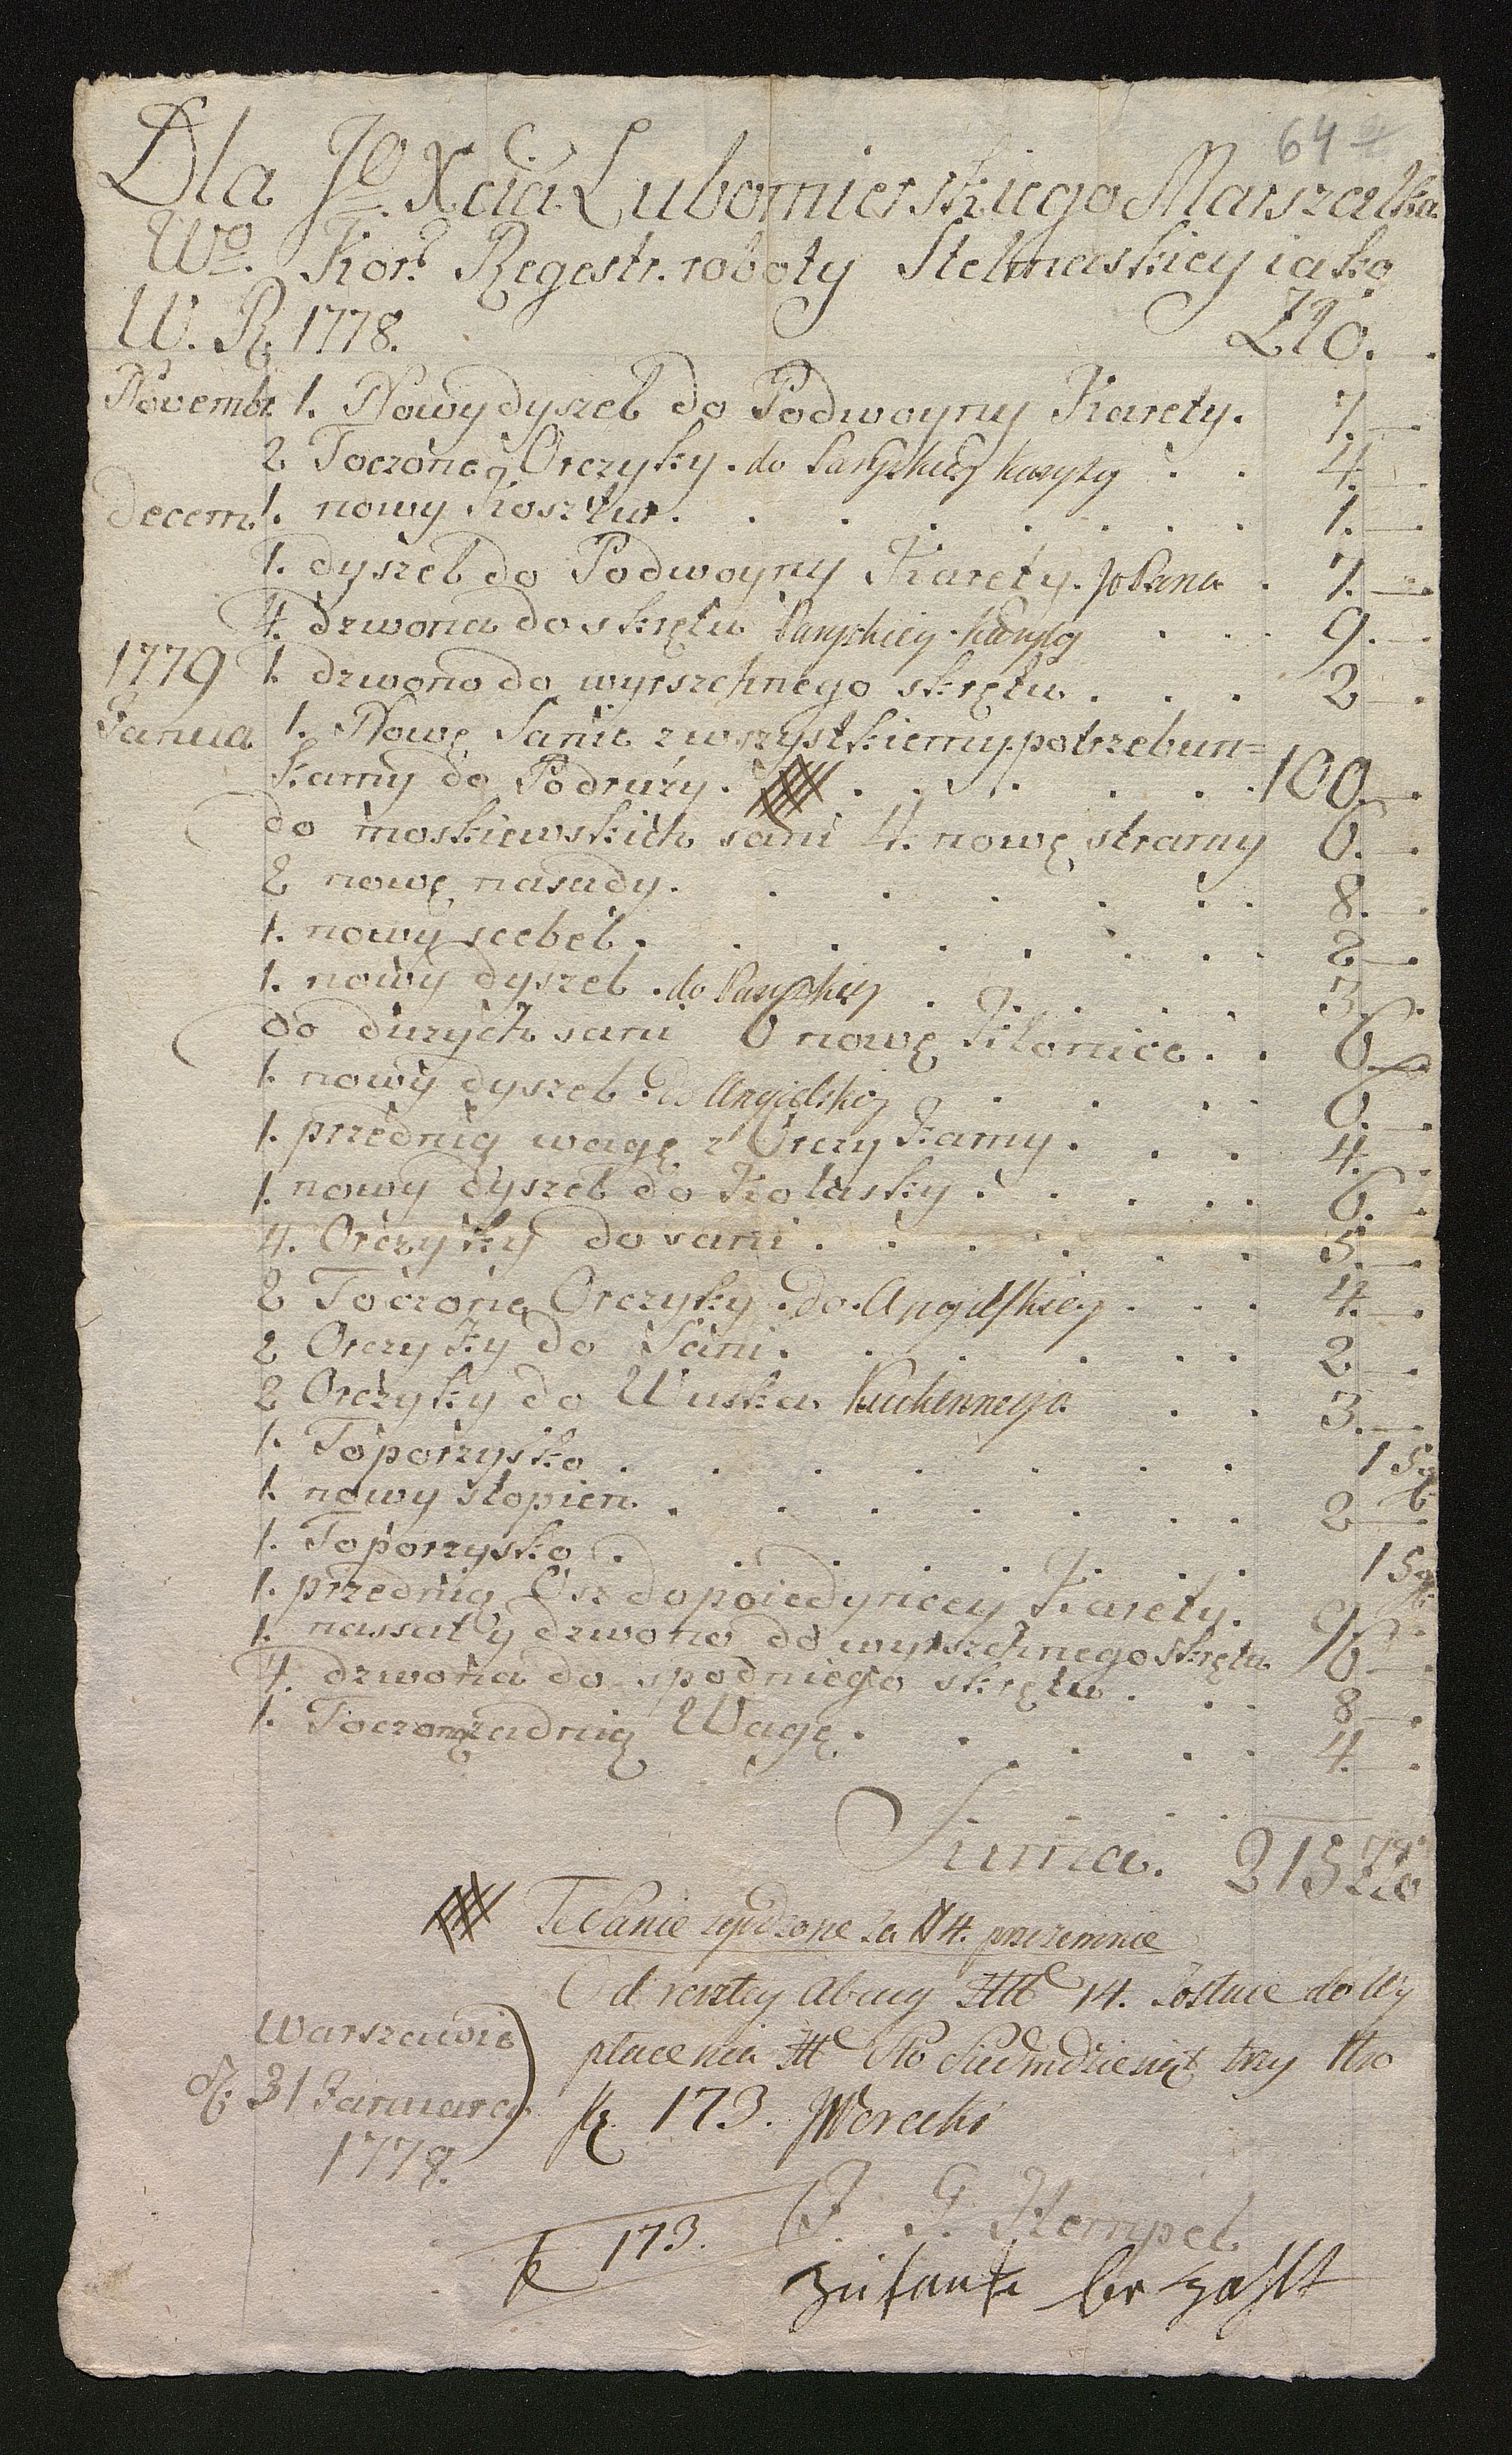 64
Dla JO. X cia Lubomierskiego Marszałka
Wo. Kor. Regestr. roboty Stelmaskiey iako
W. R. 1778. Zło.
Novembr. 1. Nowy dyszel do Podwoyny Karety. 7.
2 Toczone Orczyky. do Paryskiey karyty . . 4.
Decem. 1. nowy Kosztur. . . . . . . 1.
1. dyszel do Podwoyny Karety. JoPana . 7.
4. dzwona do skrętu Paryskiey karyty . . . 9.
1779 1. dzwono do wyrszchnego skrętu . . . 2
Janua 1. Nowe Sanie z wszystkiemy potrzebun=
kamy do Podruży. . . . . . . 100.
do moskiewskich sani 4. nowę stramy 6.
2 nowę nasady. . . . . . . 8.
1. nowy scebel. . . . . . . . 2
1. nowy dyszel. do Paryskiey . . . . . 3.
do duzych sani 6 nowę Kłonice. . 6.
1. nowy dyszel. do Angielskiey . . . . 6.
1. przednią wagę z Orczykamy. . . 4.
1. nowy dyszel do Kolasky. . . . . 6.
4. Orczyky do sani . . . . . . 5.
2 Toczone Orczyky. do. Angielskiey . . . 4.
2 Orczyky do Sani. . . . . . 2
2 Orczyky do Wuska Kuchennego . . 3.
1. Toporzysko . . . . . . . 15 g
1. nowy stopien . . . . . . 2
1. Toporzysko . . . . . . . 15 g
1. przednią Osz do poiedyncey Karety. 9
1. nassat y dzwono do wyrszchnego skrętu 16
4. dzwona do spodniego skrętu . . . 8
1. Toczoną zadnią Wagę. . . . . 4.
Suma. 215 Zło
Te Sanie zgodzone za # 4. przezemnie
Od reszty abcug 14. Zostaie do Wy
płacenia Sto Siedmdziesiąt trzy
173. Morecki
Warszawie
d. 31 Januar
1778.
173.
J. G. Hempel
zu dank bezahlt